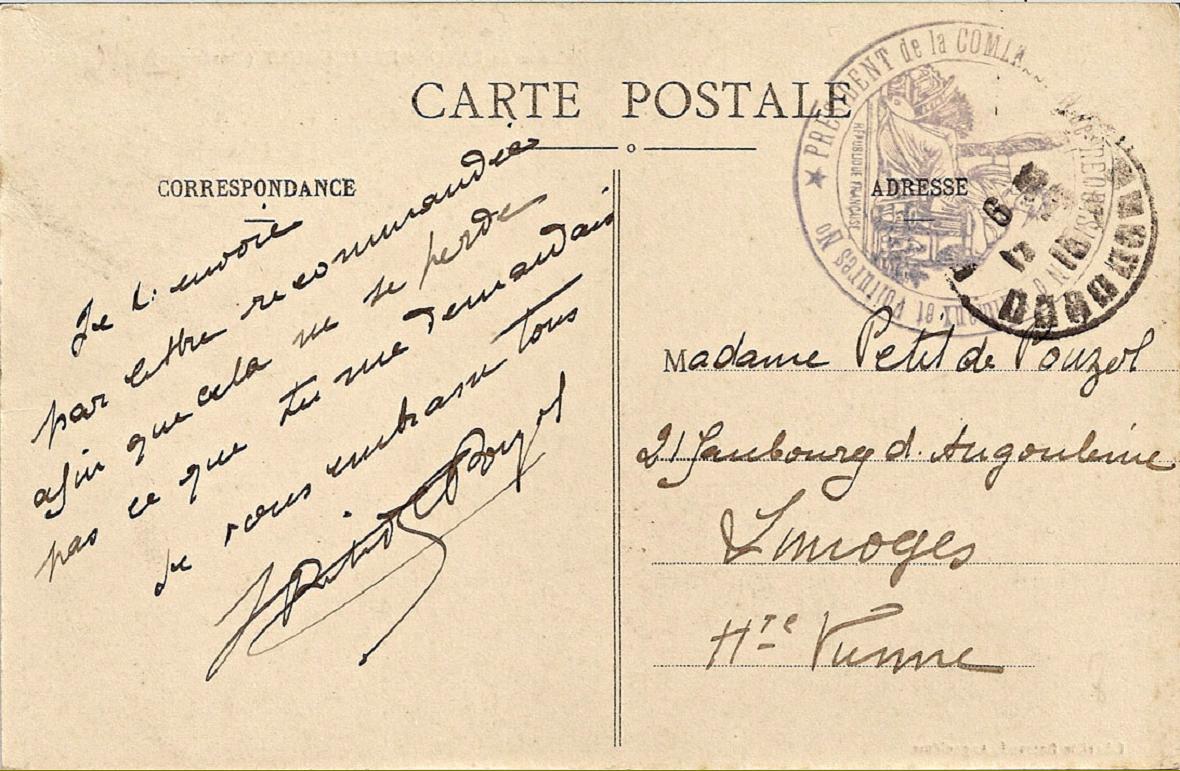 CARTE POSTALE
CORRESPONDANCE
Je t'envoie
par lettre recommandée
afin que cela ne se perde
pas ce que tu me demandais
Je vous embrasse tous
Petit de Pouzol
ADRESSE
★ PRÉSIDENT de la
et Voitures No
RÉPUBLIQUE FRANÇAISE
Madame Petit de Pouzol
21 faubourg d'Angoulême
Limoges
Hte Vienne